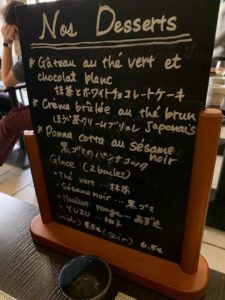 Nos Desserts
* Gâteau au thé vert et
chocolat blanc
抹茶とホワイトチョコレートケーキ
* Crème brûlée au thé brun
ほうじ茶クリームブリュレ Japonais
* Panna cotta au sésame
noir
黒ゴマのパンナコッタ
Glace (2 boules)
・Thé vert ... 抹茶
・Sésame noir ... 黒ゴマ
・Haricot rouge ... あずき
・YUZU ... ゆず
(midi) (soir) 6.5€